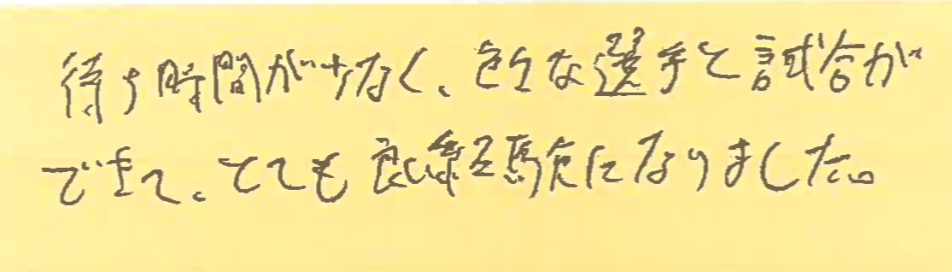 待ち時間が少なく、色々な選手と試合が
できて、とても良い経験になりました。